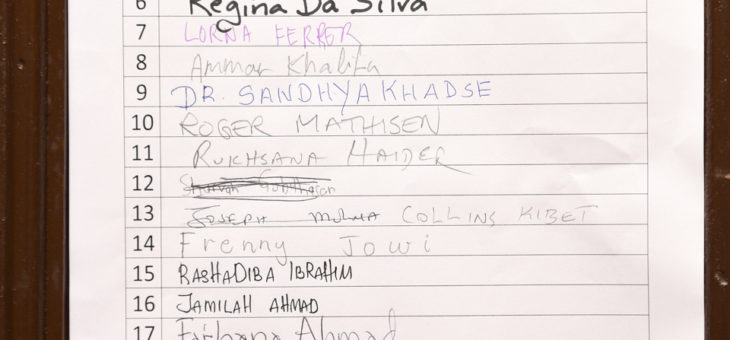 6 Regina Da Silva
7 LORNA FERRER
8 Ammar Khalifa
9 DR. SANDHYA KHADSE
10 ROGER MATHISEN
11 RUKHSANA HAIDER
12
13 JOSEPH COLLINS KIBET
14 Frenny Jowi
15 RASHADIBA IBRAHIM
16 JAMILAH AHMAD
17 Farhana Ahmad